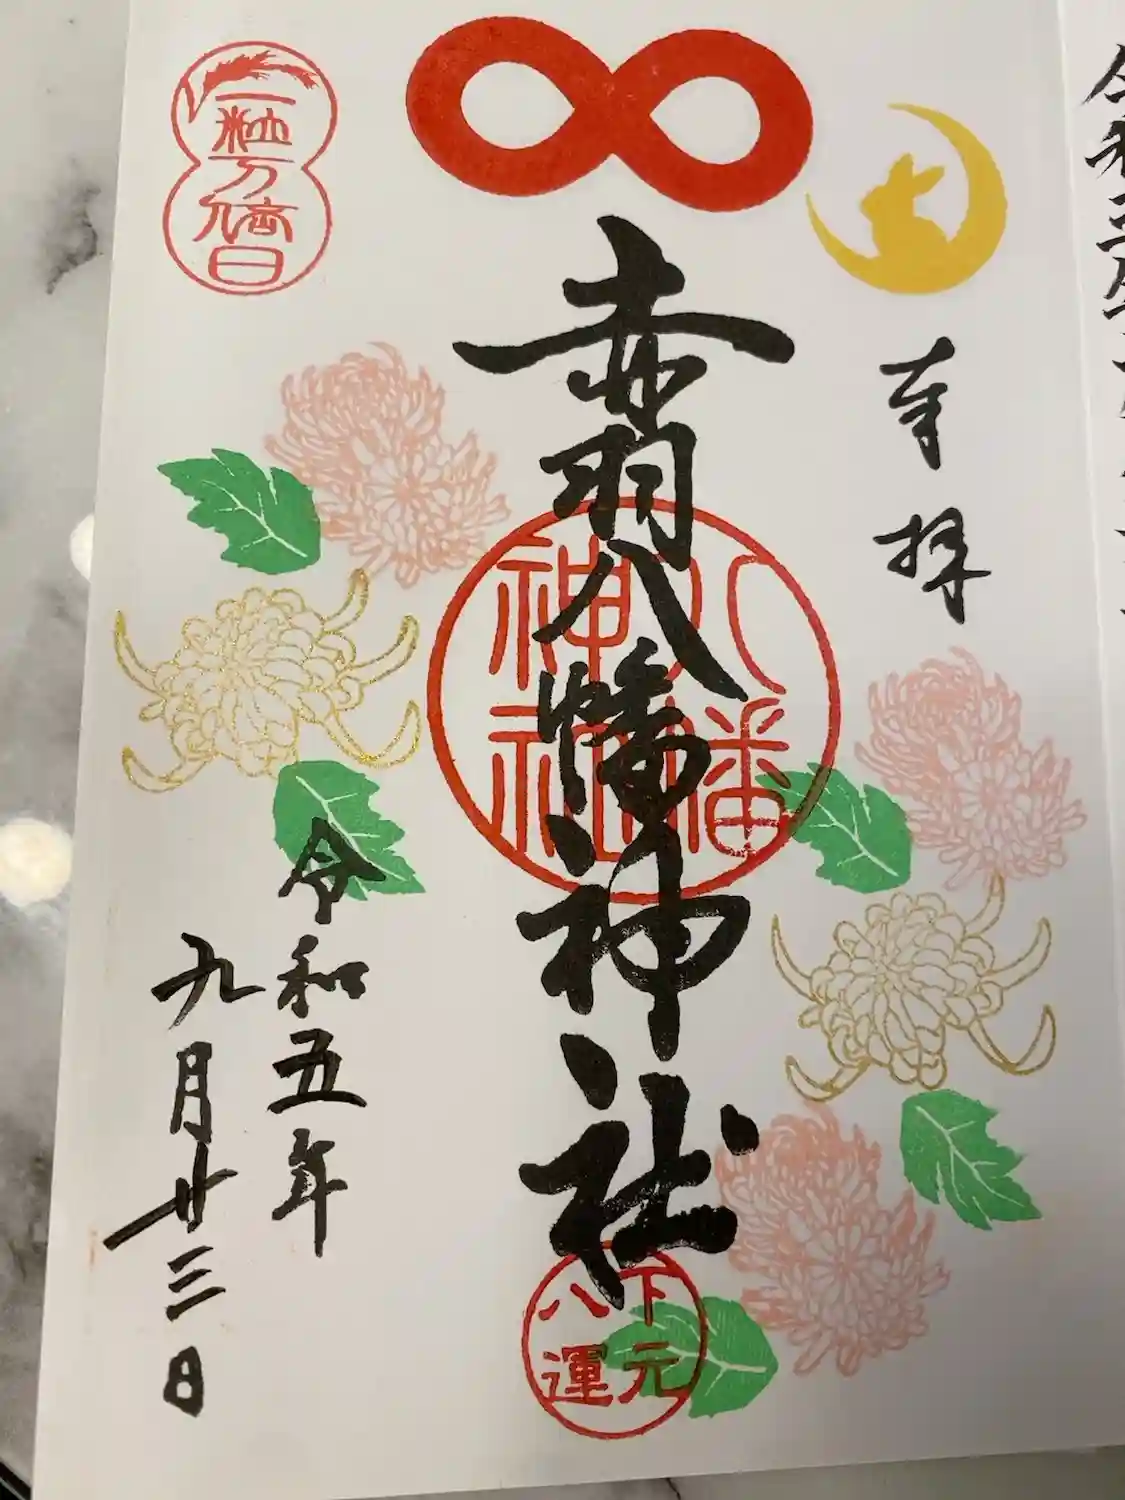 奉拝
赤羽八幡神社
八幡
神社
下元
八運
一粒万倍日
令和五年
九月廿三日